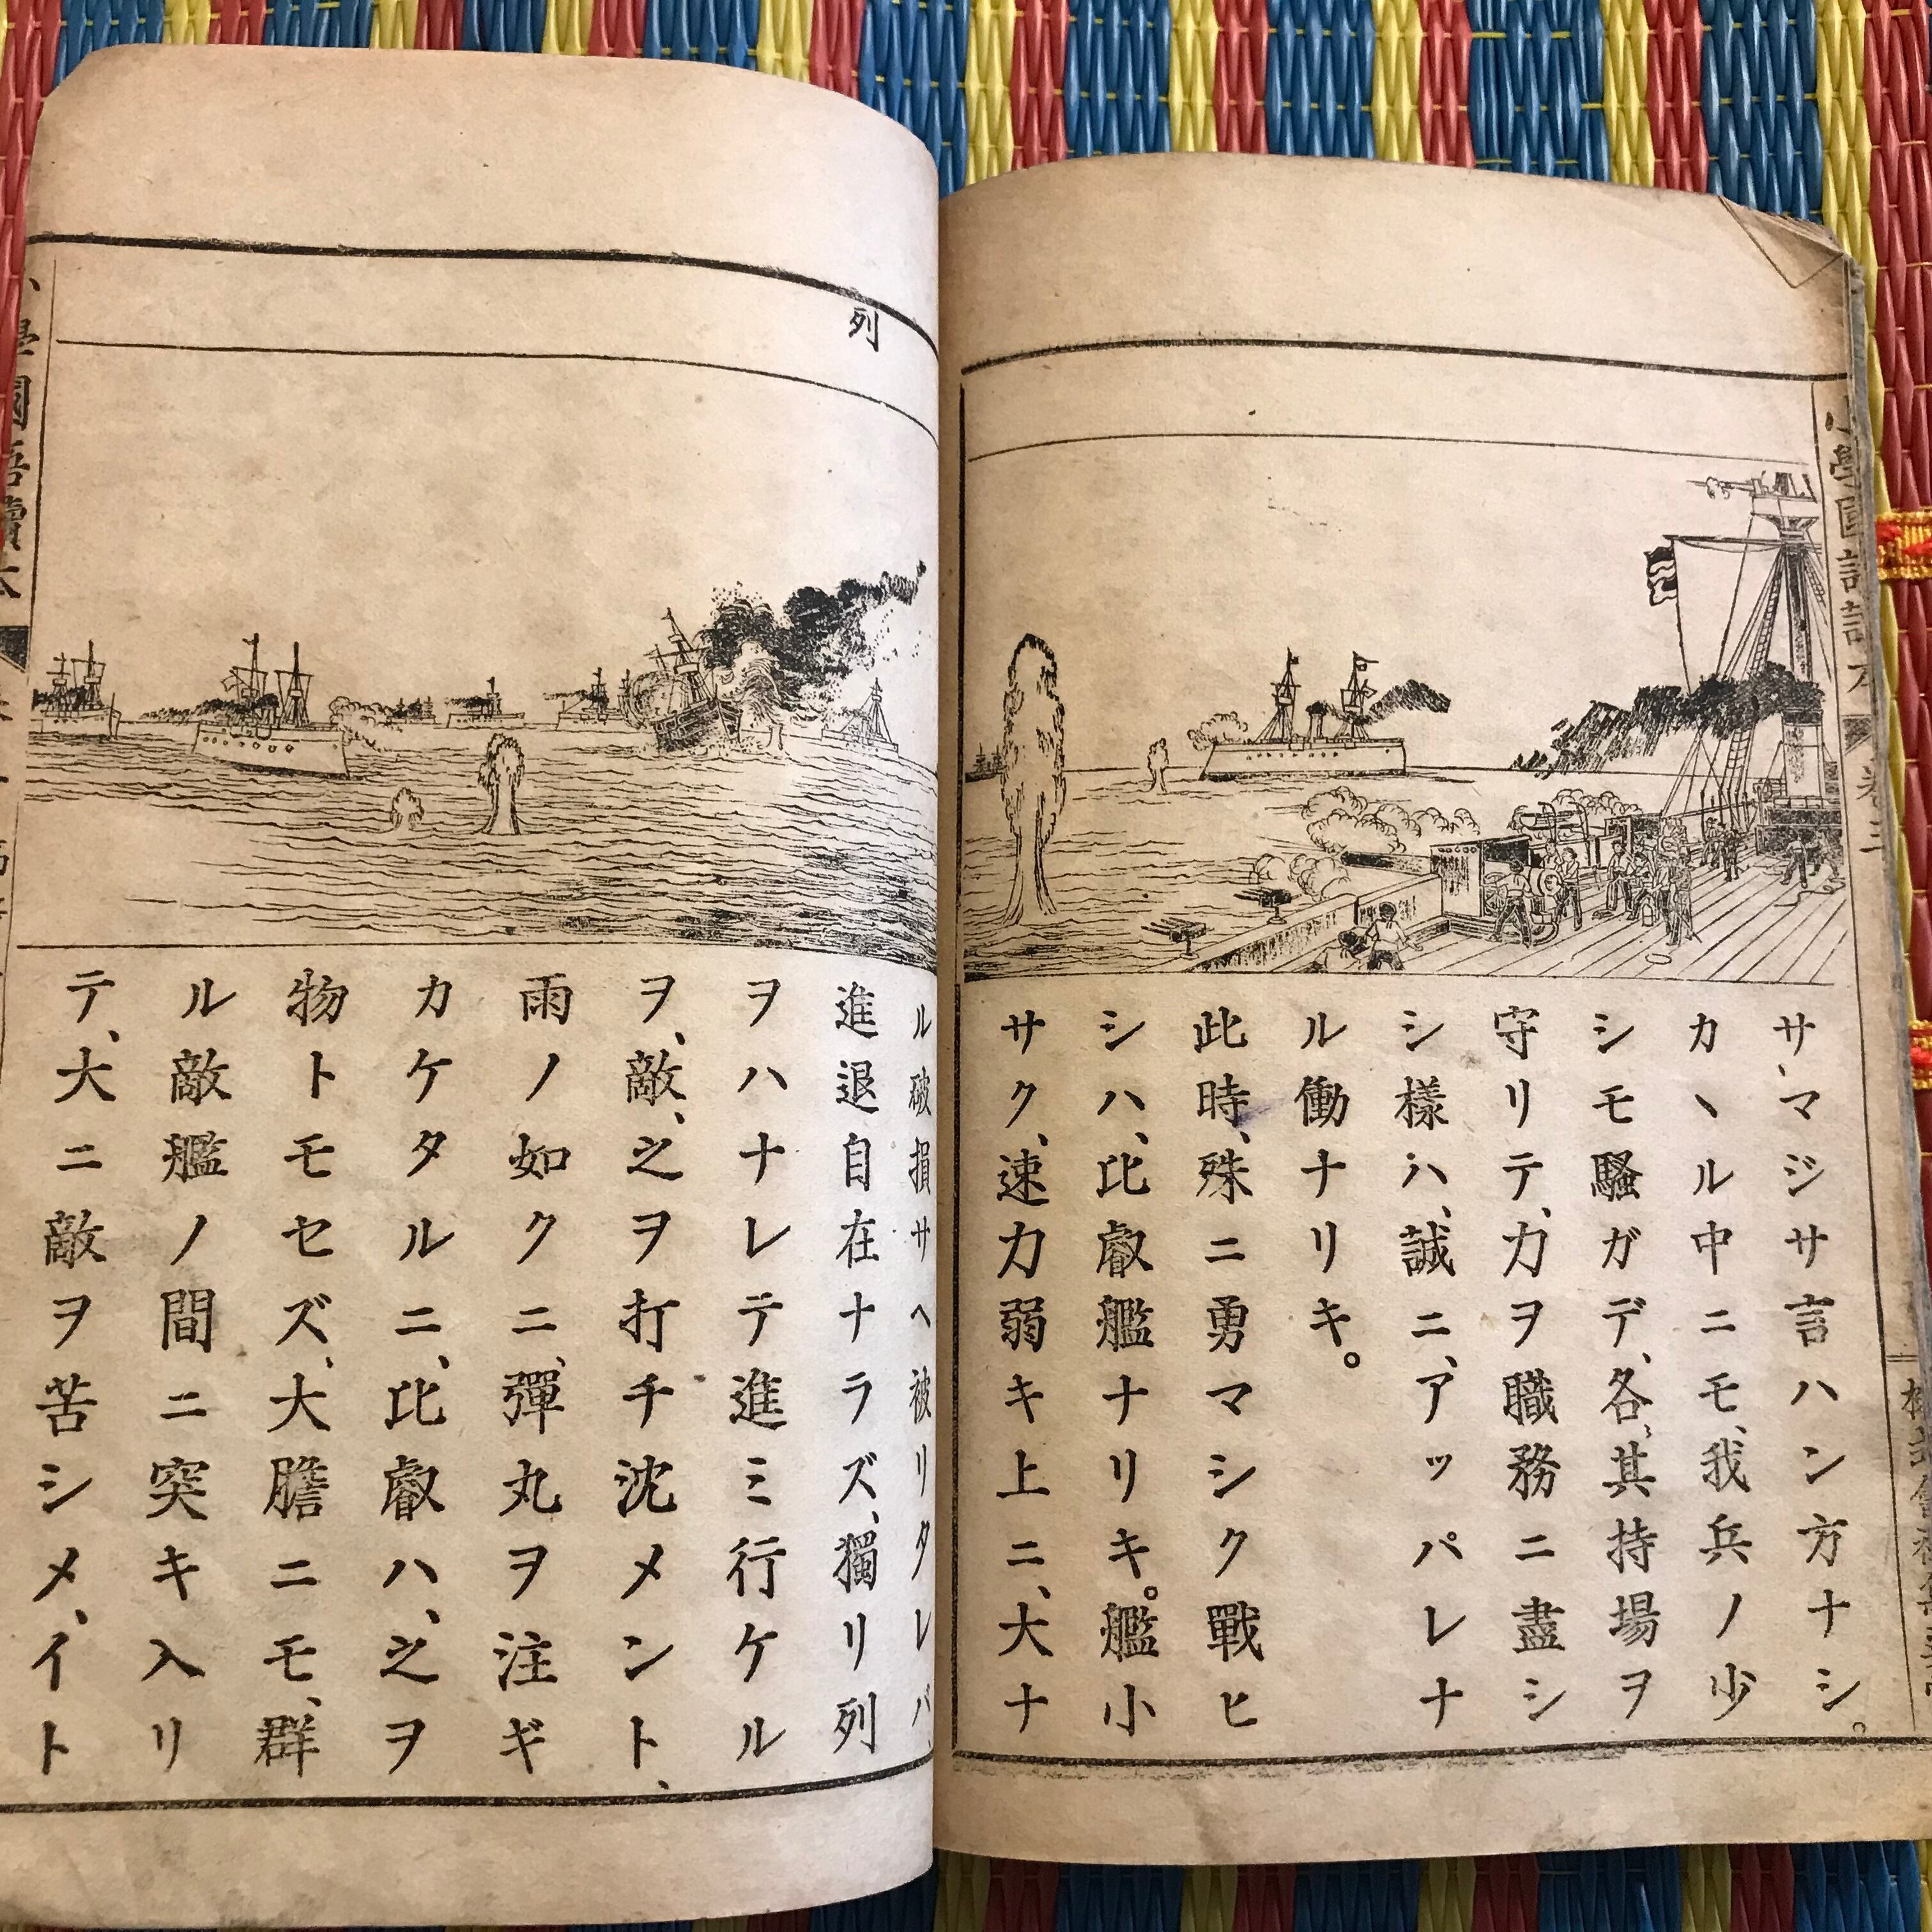 サマジサ言ハン方ナシ。
カヽル中ニモ、我兵ノ少
シモ騷ガデ、各、其持場ヲ
守リテ、力ヲ職務ニ盡シ
シ樣ハ、誠ニ、アッパレナ
ル働ナリキ。
此時、殊ニ勇マシク戰ヒ
シハ、比叡艦ナリキ。艦小
サク、速力弱キ上ニ、大ナ
ル破損サヘ被リタレバ、
進退自在ナラズ、獨リ列
ヲハナレテ進ミ行ケル
ヲ、敵、之ヲ打チ沈メント、
雨ノ如クニ、彈丸ヲ注ギ
カケタルニ、比叡ハ、之ヲ
物トモセズ、大膽ニモ、群
ル敵艦ノ間ニ突キ入リ
テ、大ニ敵ヲ苦シメ、イト
列
小學國語讀本
卷三
學國語讀本